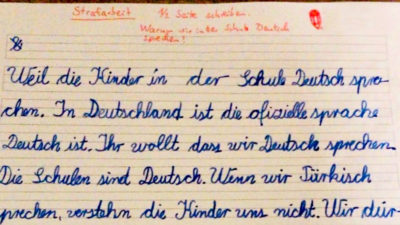 Strafarbeit 1/2 Seite schreiben.
Warum wir in der Schule Deutsch
sprechen!
Weil die Kinder in der Schule Deutsch spre-
chen. In Deutschland ist die ofizielle sprache
Deutsch ist. Ihr wollt dass wir Deutsch sprechen
Die Schulen sind Deutsch. Wenn wir Türkisch
sprechen, verstehn die Kinder uns nicht. Wir dür-